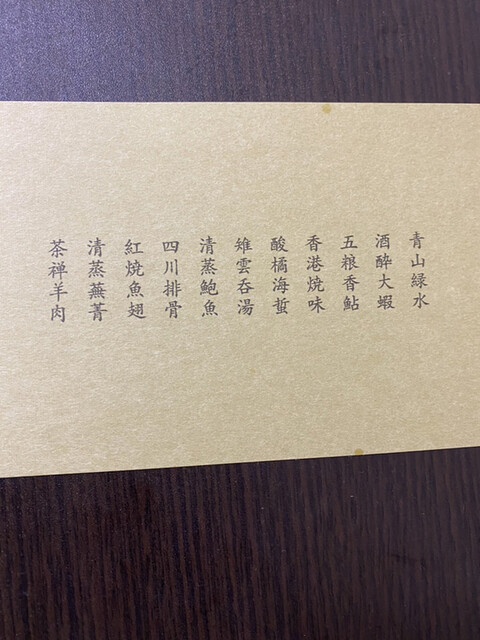 青山緑水
酒酔大蝦
五粮香鮎
香港焼味
酸橘海蜇
雉雲呑湯
清蒸鮑魚
四川排骨
紅焼魚翅
清蒸蕪菁
茶禅羊肉